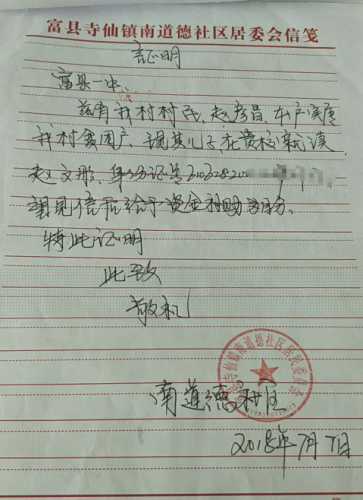 富县寺仙镇南道德社区居委会信笺
证明
富县一中:
兹有我村村民,赵彦昌,本户实属
我村贫困户,现其儿子在贵校就读,
赵文彤,身份证号
望见信后给于资金补助为盼。
特此证明
此致
敬礼
富县寺仙镇南道德社区居民委员会
南道德社区
2018年7月7日